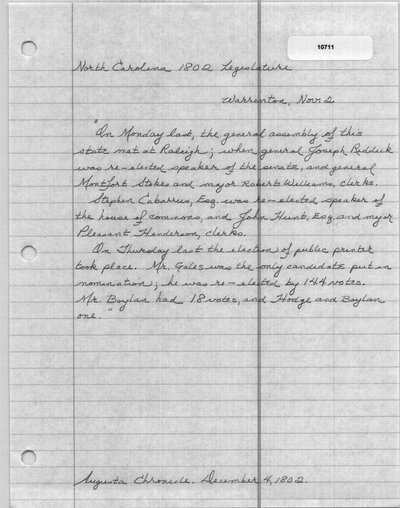 10711
North Carolina 1802 Legislature
Warrenton, Nov. 2
"On Monday last, the general assembly of this
state met at Raleigh; when general Joseph Riddick
was re-elected speaker of the senate, and general
Montfort Stokes and major Robert Williams, clerks.
Stephen Cabarrus, Esq. was re-elected speaker of
the house of commons, and John Hunt, Esq. and major
Pleasant Henderson, clerks.
On Thursday last the election of public printer
took place. Mr. Gales was the only candidate put in
nomination; he was re-elected by 144 votes.
Mr. Boylan had 18 votes, and Hodge and Boylan
one."
Augusta Chronicle. December 4, 1802.